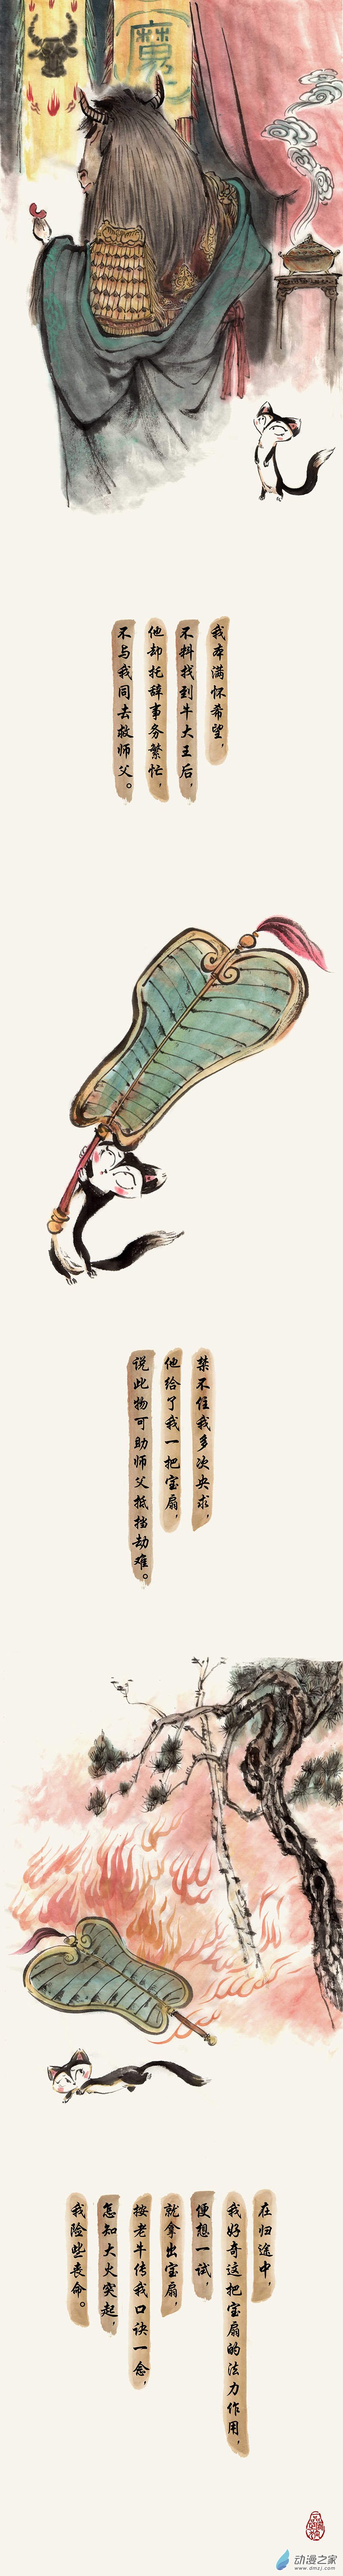 魔
我本满怀希望，
不料找到牛大王后，
他却托辞事务繁忙，
不与我同去救师父。
禁不住我多次央求，
他给了我一把宝扇，
说此物可助师父抵挡劫难。
在归途中，
我好奇这把宝扇的法力作用，
便想一试，
就拿出宝扇，
按老牛传我口诀一念，
怎知大火突起，
我险些丧命。
动漫之家
www.dmzj.com